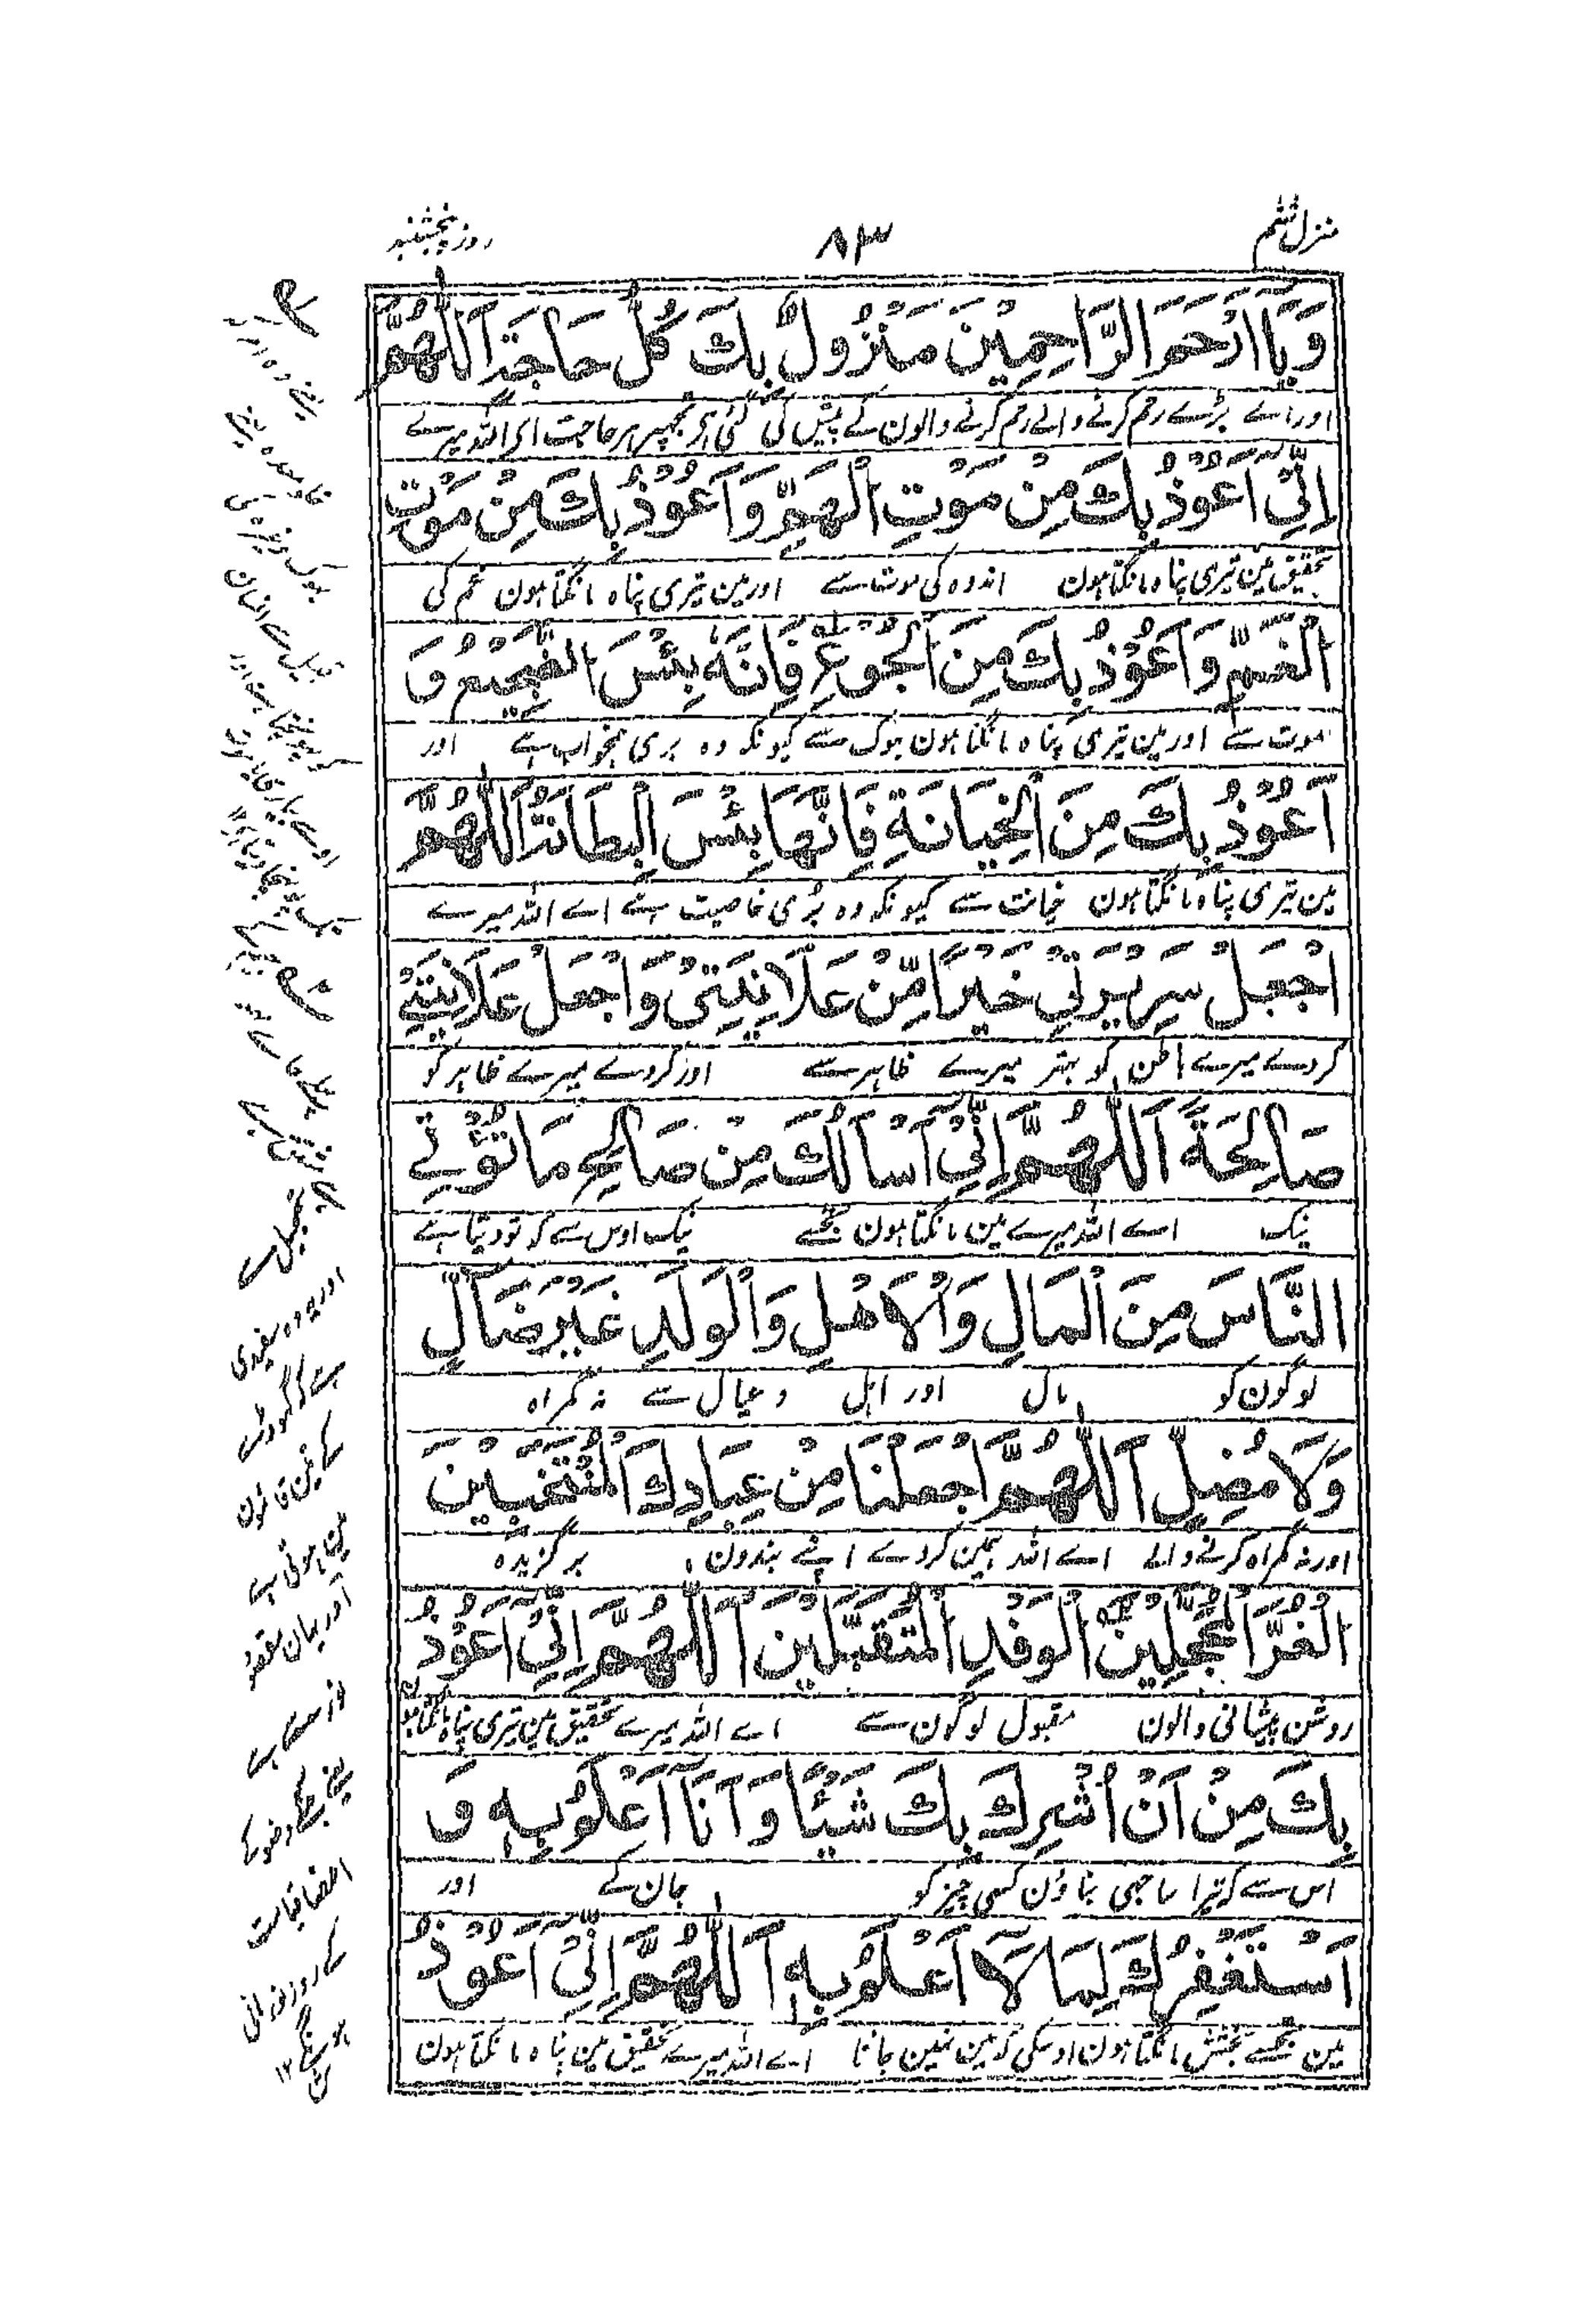 منزل ششم
۸۳
روز پنجشنبہ
وَيَا اَرْحَمَ الرَّاحِمِيْنَ مَنْزُوْلٌ بِكَ كُلُّ حَاجَةٍ اَللّٰهُمَّ
اور اے بڑے رحم کرنے والے رحم کرنے والون کے پیش کی گئی ہی تجھپر ہر حاجت اے اللہ میرے
اِنِّيْ اَعُوْذُ بِكَ مِنْ مَوْتِ الْهَمِّ وَاَعُوْذُ بِكَ مِنْ مَوْتِ
تحقیق مین تیری پناہ مانگتا ہون اندوہ کی موت سے اور مین تیری پناہ مانگتا ہون غم کی
الْغَمِّ وَاَعُوْذُ بِكَ مِنَ الْجُوْعِ فَاِنَّهٗ بِئْسَ الضَّجِيْعُ وَ
موت سے اور مین تیری پناہ مانگتا ہون بہوک سے کیونکہ وہ بری ہمخواب ہے اور
اَعُوْذُ بِكَ مِنَ الْخِيَانَةِ فَاِنَّهَا بِئْسَ الْبِطَانَةُ اَللّٰهُمَّ
مین تیری پناہ مانگتا ہون خیانت سے کیونکہ وہ بُری خاصیت ہے اے اللہ میرے
اجْعَلْ سَرِيْرَتِيْ خَيْرًا مِّنْ عَلَانِيَتِيْ وَاجْعَلْ عَلَانِيَتِيْ
کردے میرے باطن کو بہتر میرے ظاہر سے اور کردے میرے ظاہر کو
صَالِحَةً اَللّٰهُمَّ اِنِّيْ اَسْاَلُكَ مِنْ صَالِحِ مَا تُؤْتِي
نیک اے اللہ میرے مین مانگتا ہون تجھسے نیک اوس سے کہ تو دیتا ہے
النَّاسَ مِنَ الْمَالِ وَالْاَهْلِ وَالْوَلَدِ غَيْرَ ضَالٍّ
لوگون کو مال اور اہل و عیال سے نہ گمراہ
وَلَا مُضِلٍّ اَللّٰهُمَّ اجْعَلْنَا مِنْ عِبَادِكَ الْمُنْتَخَبِيْنَ
اور نہ گمراہ کرنے والے اے اللہ ہمین کردے اپنے بندون برگزیدہ
الْغُرِّ الْمُحَجَّلِيْنَ الْوَفْدِ الْمُتَقَبَّلِيْنَ اَللّٰهُمَّ اِنِّيْ اَعُوْذُ
روشن پیشانی والون مقبول لوگون سے اے اللہ میرے تحقیق مین تیری پناہ مانگتا ہون
بِكَ مِنْ اَنْ اُشْرِكَ بِكَ شَيْئًا وَاَنَا اَعْلَمُ بِهٖ وَ
اس سے کہ تیرا ساجھی بناؤن کسی چیز کو جان کے اور
اَسْتَغْفِرُكَ لِمَا لَا اَعْلَمُ بِهٖ اَللّٰهُمَّ اِنِّيْ اَعُوْذُ
مین تجھسے بخشش مانگتا ہون اوسکی کہ مین نہین جانتا اے اللہ میرے تحقیق مین پناہ مانگتا ہون
تحجیل سے
اور یہ وہ سفیدی
ہے کہ گھوڑے
کے تین قائمون
مین ہوتی ہے
اور یہان مقصود
نور سے ہے
یعنے جنکے وضو کے
اعضا قیامت
کے روز نورانی
ہونگے ۱۲